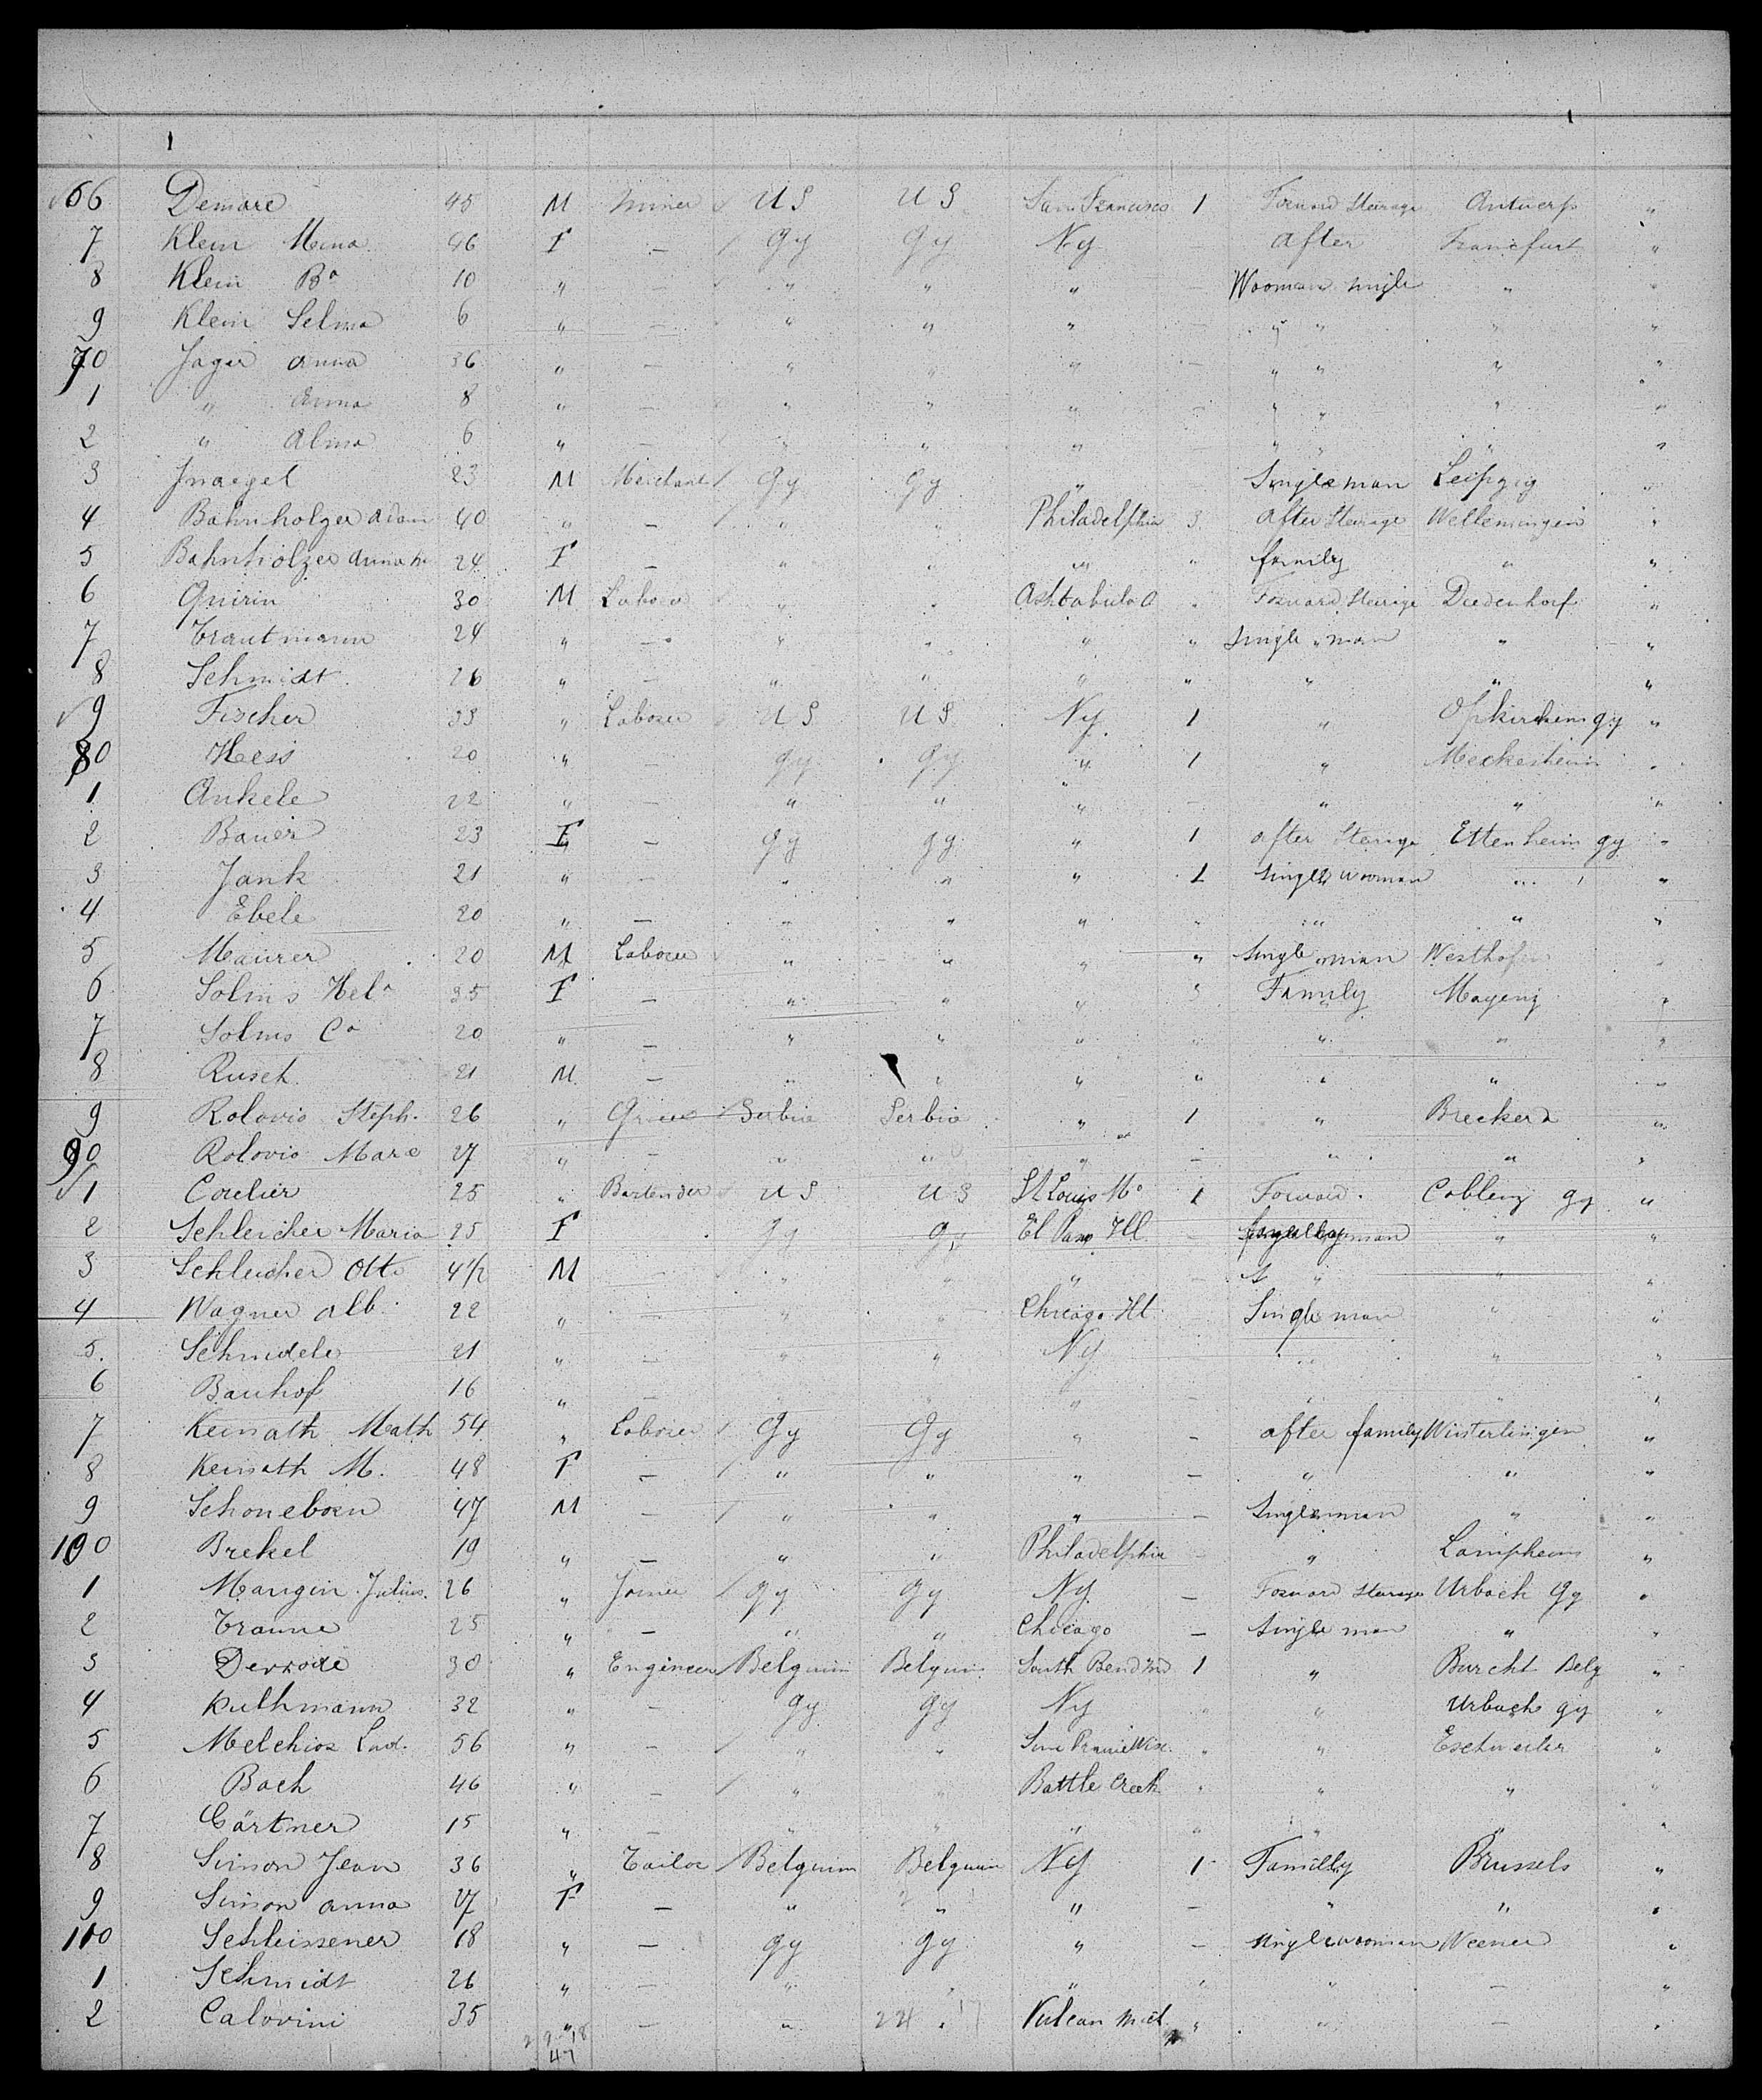 66 Demare 45 M Miner U S U S San Francisco 1 Forward Steerage Antwerp "
7 Klein Mina 46 F — Gy Gy Ny — After Francfurt "
8 Klein Bª 10 " — " " " — Wooman single " "
9 Klein Selma 6 " — " " " — " " " "
70 Jager Anna 36 " — " " " — " " " "
1 " Anna 8 " — " " " — " " " "
2 " Alma 6 " — " " " — " " " "
3 Jnaegel 23 M Merchant Gy Gy " Single man Leipzig "
4 Bahnholzer Adam 40 " — " " Philadelphia 3 After Steerage Wellemingen "
5 Bahnholzer Anna 24 F — " " " " family " "
6 Quirin 30 M Laborer " " Ashtabula O " Forward Steerage Diedenhof "
7 Trautmann 24 " — " " " " Single man " "
8 Schmidt 26 " — " " " " " " "
9 Fischer 33 " Laborer U S U S Ny 1 " Gy "
80 Hess 20 " — Gy Gy " 1 " Meckesheim "
1 Ankele 22 " — " " " — " " "
2 Bauer 23 F — Gy Gy " 1 After Steerage Ettenheim Gy "
3 Jank 21 " — " " " 1 Single wooman " "
4 Ebele 20 " — " " " " " " "
5 Maurer 20 M Laborer " " " " Single man Westhofen "
6 Solms Helª 35 F — " " " 3 Family Mayenz "
7 Solms Cª 20 " — " " " " " " "
8 Rusch 21 M — " " " " " " "
9 Rolovio Steph. 26 " Serbia Serbia " 1 " Brecker "
90 Rolovio Mare 27 " — " " " — " " "
1 Corelier 25 " Bartender U S U S St Louis Mo 1 Forward Coblenz Gy "
2 Schleicher Maria 25 F Gy Gy El Paso Ill — " "
3 Schleicher Otto 4 1/2 M — " " " — " " "
4 Wagner Alb. 22 " — " " Chicago Ill — Single man " "
5. Schmidele 21 " — " " Ny " " "
6 Bauhof 16 " — " " " — " " "
7 Keinath Math 54 " Laborer Gy Gy " — After family Winterlingen "
8 Keinath M. 48 F — " " " — " " "
9 Schoneborn 47 M — " " " — Single man " "
100 Brekel 19 " — " " Philadelphia — " Lampheim "
1 Mangin Julius. 26 " Joiner Gy Gy Ny — Forward Steerage Urbach Gy "
2 Traune 25 " — " " Chicago — Single man " "
3 Derrode 30 " Engineer Belguim Belguim South Bend Ind 1 " Burcht Belg "
4 Kuthmann 32 " — Gy Gy Ny " " Urbach Gy "
5 Melchior Lud. 56 " — " " Sun Prairie Wisc. " " Eschweiler "
6 Bach 46 " — " " Battle Creek " " " "
7 Gärtner 15 " — " " " " " " "
8 Simon Jean 36 " Tailor Belguim Belguim Ny 1 Familly Brussels "
9 Simon Anna 27 F — " " " — " " "
110 Schleissener 18 " — Gy Gy " — Single wooman Weener "
1 Schmidt 26 " — " " " " " — "
2 Calovini 35 " — " 24 . 17 Vulcan Mich " " — "
2 9 18
47